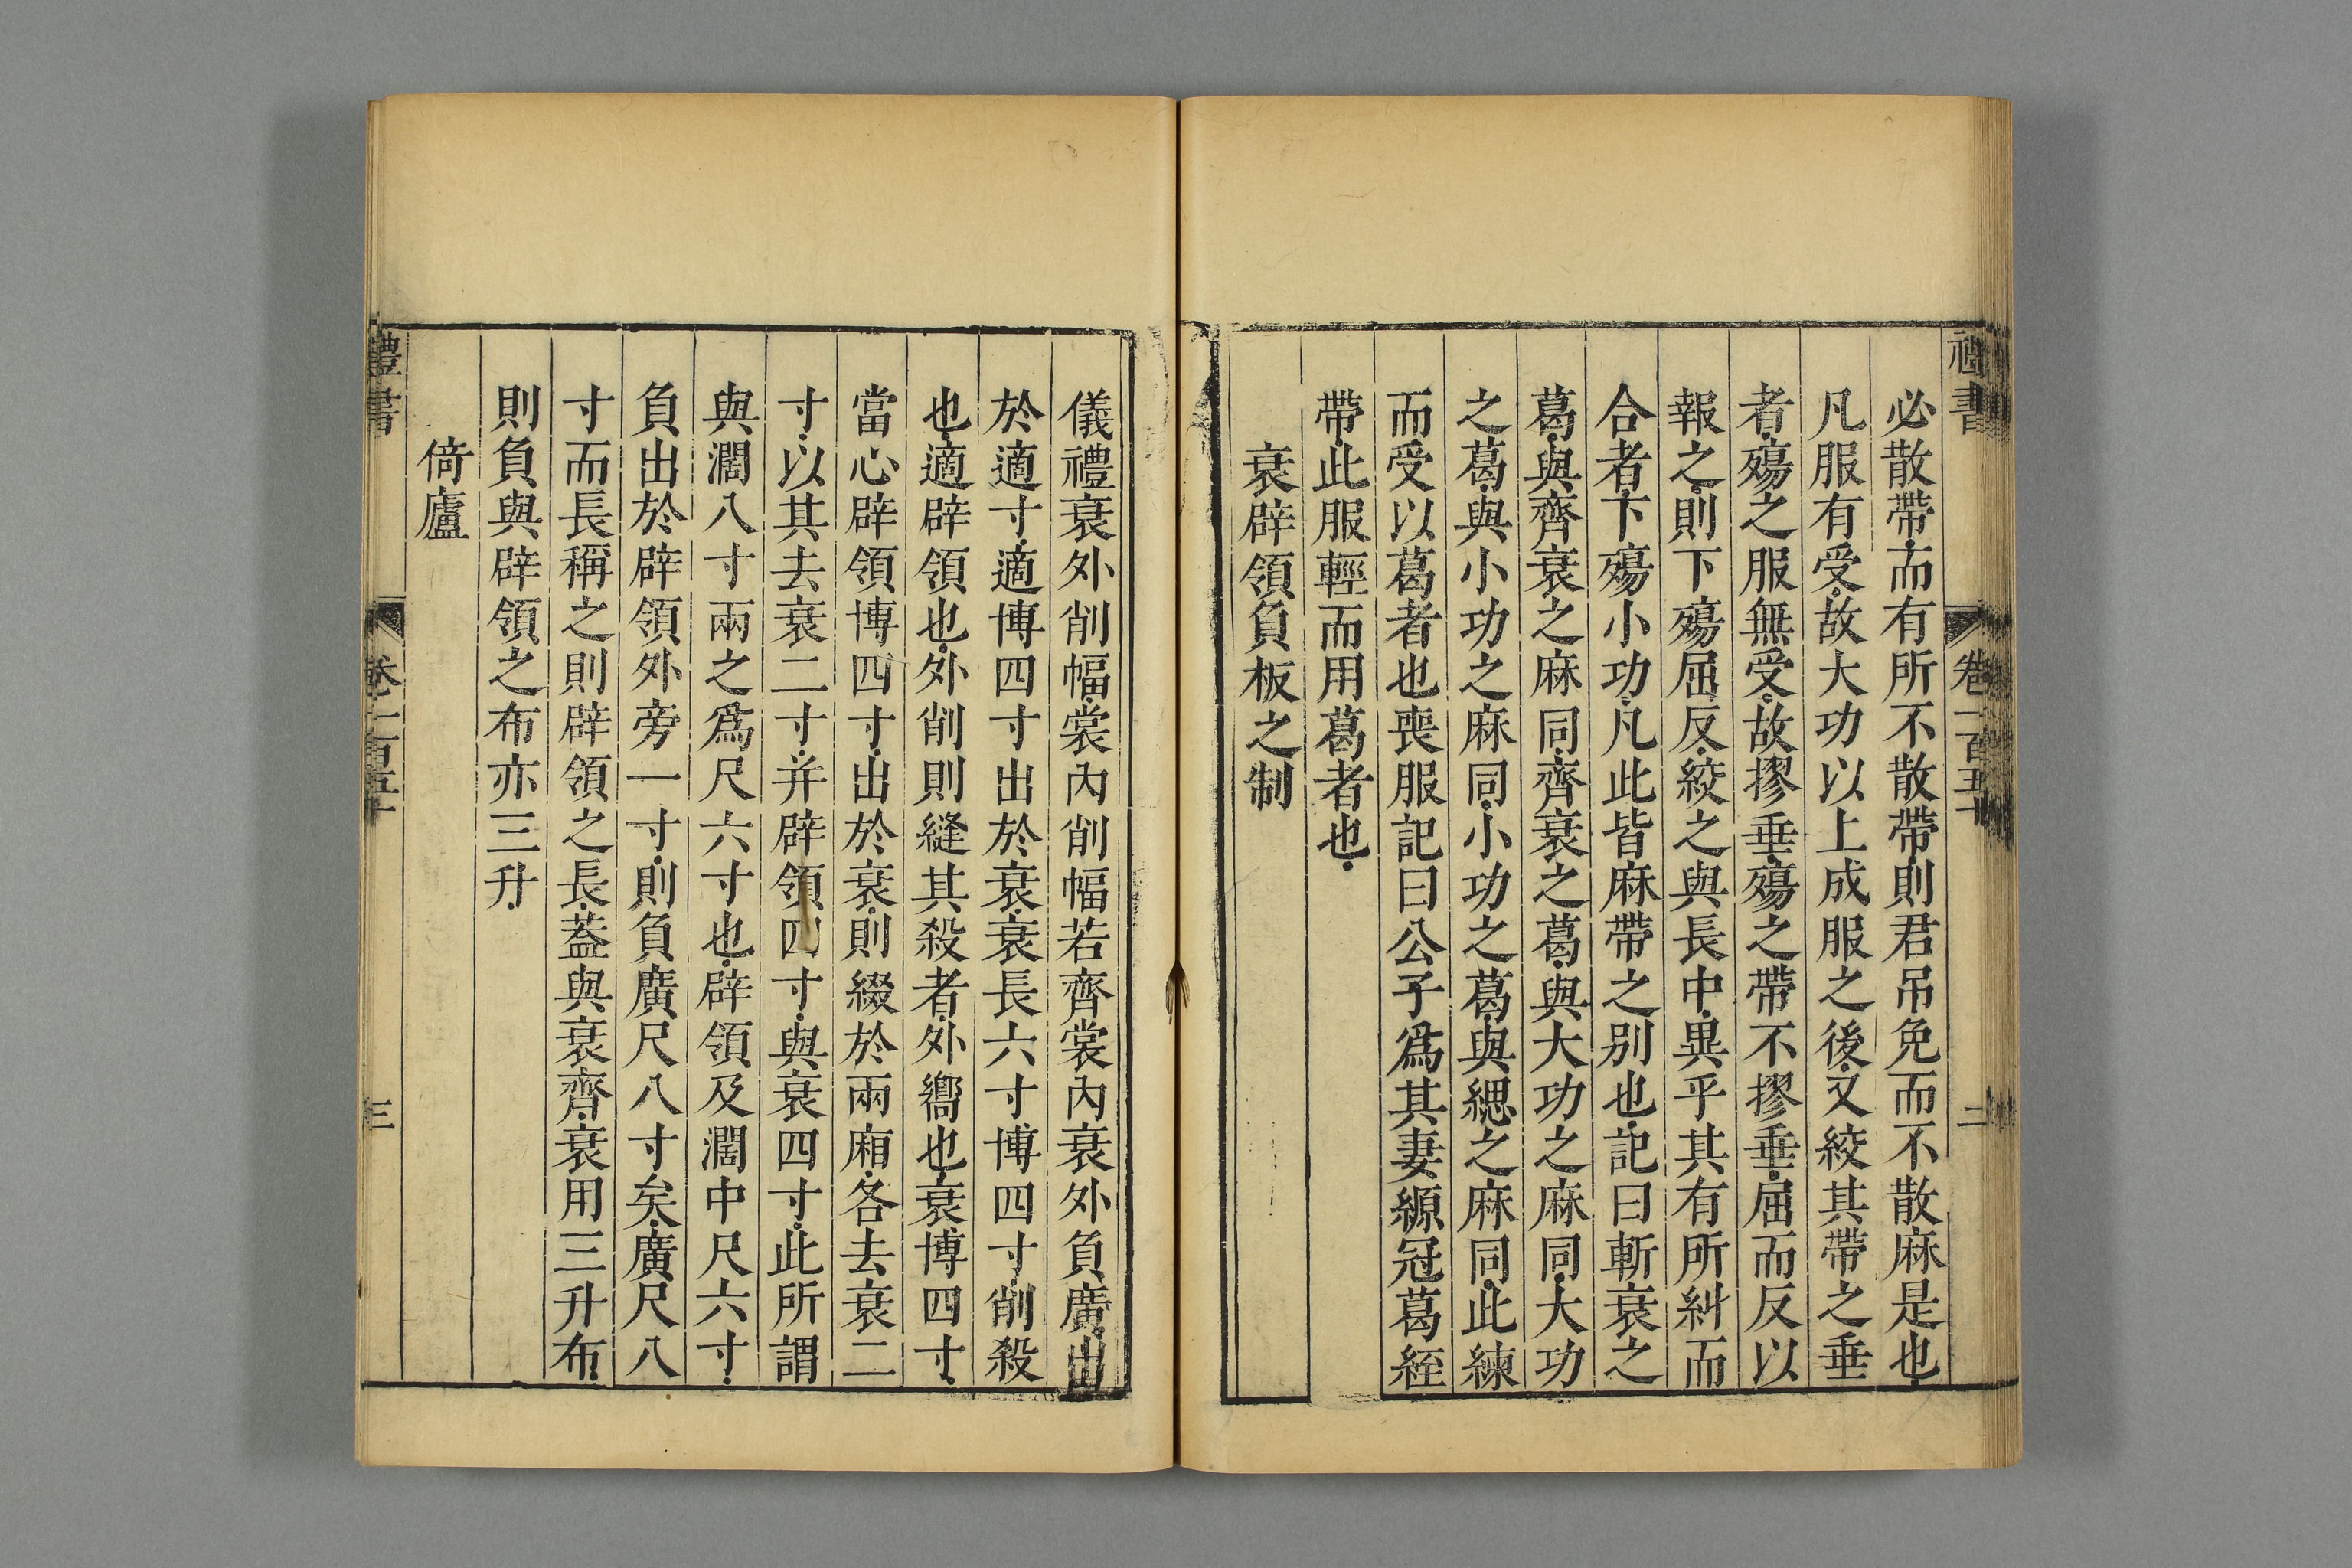 禮書 卷一百五十 二
必散帶而有所不散帶則君吊免而不散麻是也
凡服有受故大功以上成服之後又絞其帶之垂
者殤之服無受故摎垂殤之帶不摎垂屈而反以
報之則下殤屈反絞之與長中異乎其有所糾而
合者下殤小功凡此皆麻帶之别也記曰斬衰之
葛與齊衰之麻同齊衰之葛與大功之麻同大功
之葛與小功之麻同小功之葛與緦之麻同此練
而受以葛者也喪服記曰公子爲其妻縓冠葛絰
帶此服輕而用葛者也
衰辟領負板之制
儀禮衰外削幅裳內削幅若齊裳內衰外負廣出
於適寸適博四寸出於衰衰長六寸博四寸削殺
也適辟領也外削則縫其殺者外嚮也衰博四寸
當心辟領博四寸出於衰則綴於兩廂各去衰二
寸以其去衰二寸并辟領四寸與衰四寸此所謂
與濶八寸兩之爲尺六寸也辟領及濶中尺六寸
負出於辟領外旁一寸則負廣尺八寸矣廣尺八
寸而長稱之則辟領之長葢與衰齊衰用三升布
則負與辟領之布亦三升
倚廬
禮書 卷一百五十 三